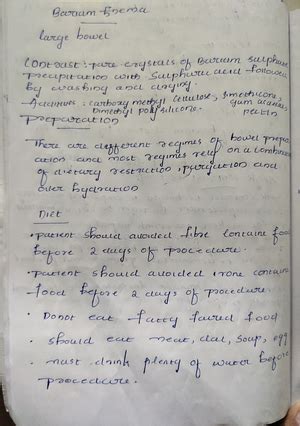 Barium Enema
large bowel
Contrast: pure crystals of Barium sulphate
precipitation with sulphuric acid followed
by washing and drying
Additives: carboxy methyl cellulose, simethicone,
Dimethyl poly silicone. gum acacia,
pectin
Preparation
There are different regimes of bowel prepar
ation and most regimes rely on a combination
of dietary restriction, purgation and
over hydration
Diet
• patient should avoided fibre containe food
before 2 days of procedure.
• patient should avoided irone containe
food before 2 days of procedure.
• Donot eat fatty faured food
• should eat meat, dal, soup, egg
• must drink plenty of water before
procedure.